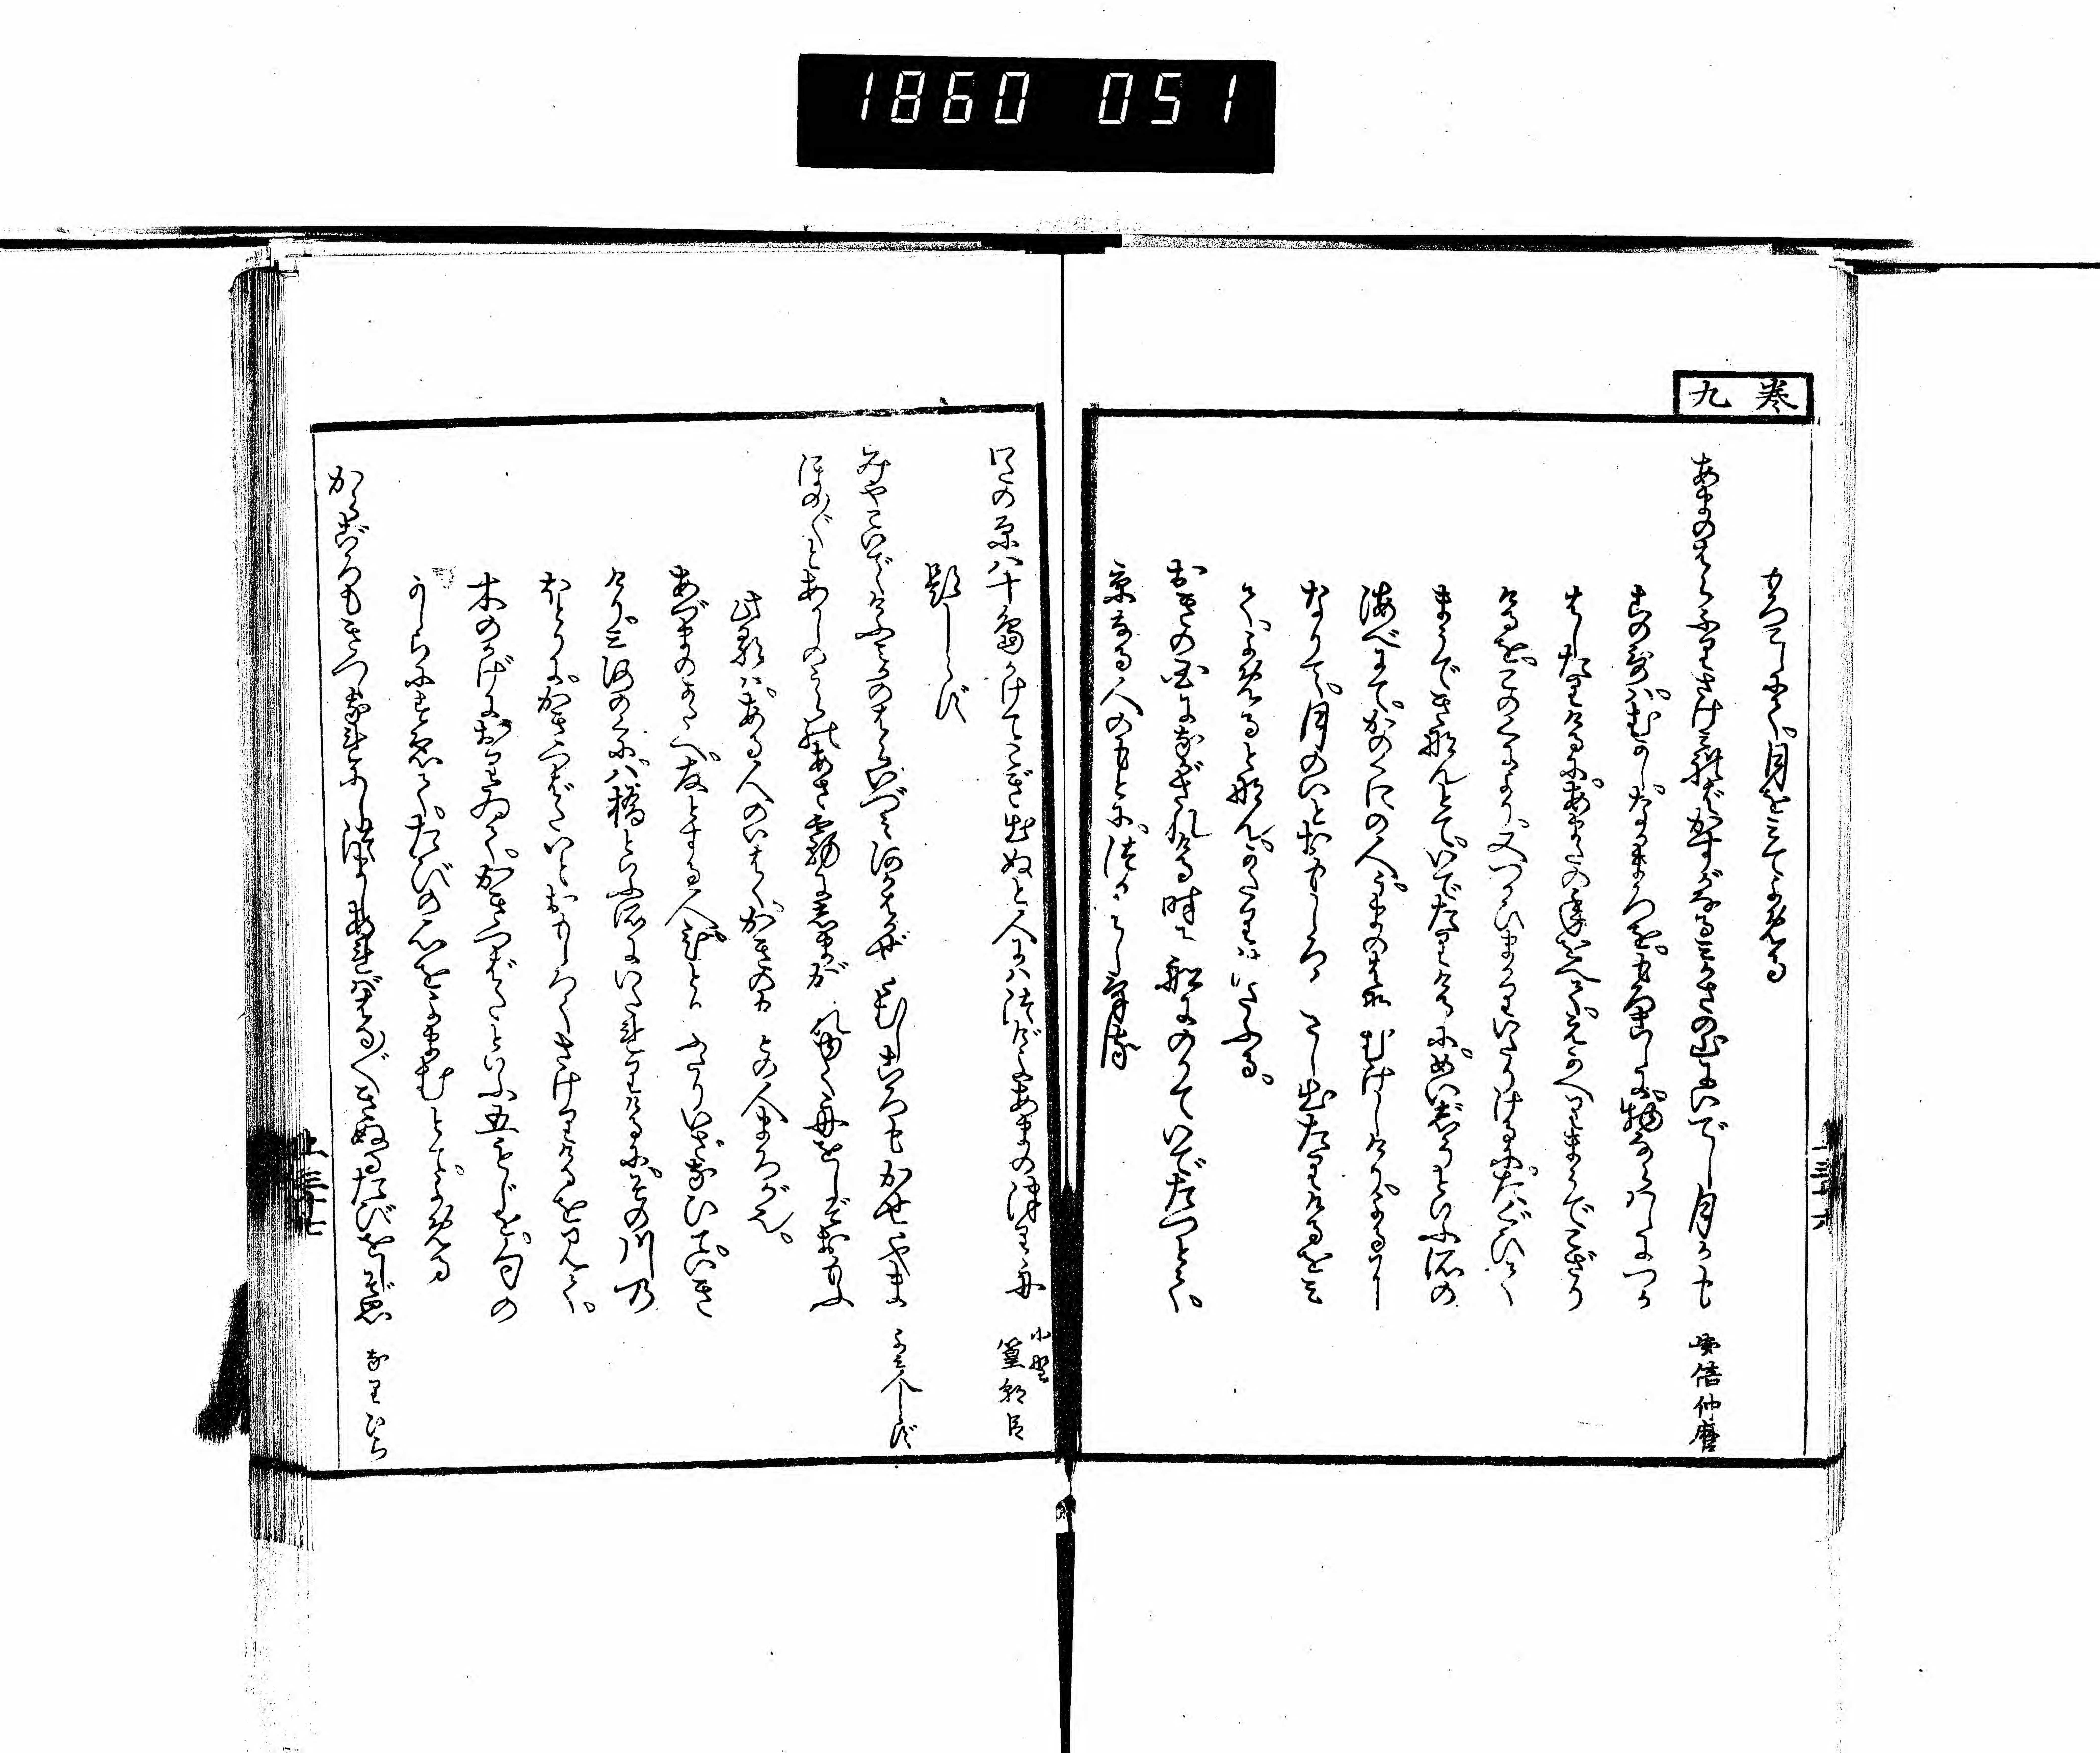 1860 051
巻九
もろこしにて、月を見てよめる
あまのはらふりさけみればかすがなるみかさの山にいでし月かも 安倍仲麿
この哥は、むかし、なかまろを、もろこしに、物ならはしにつか
はしたりけるに、あまたの年をへて、えかへりまうでこざり
けるを、このくにより、又つかひまかりいたりけるに、たぐひて
まうできなんとて、いでたりけるに、めいしうといふ所の
海べにて、かのくにの人、うまのはなむけしけり、よるに
なりて、月のいとおもしろく さし出たりけるをみ
て、よめるとなん、かたりつたふる。
おきの国にながされける時に 船にのりていでたつとて、
京なる人のもとに、つかはしける
わたの原八十島かけてこぎ出ぬと人にはつげよあまの津り舟 小野篁朝臣
題しらず
みやこいでてけふみかのはらいづみ河かはかぜさむしころもかせやま よみ人しらず
ほのぼのとあかしのうらのあさ霧に島がくれ行舟をしぞおもふ
此歌は、ある人のいはく、かきのもとの人まろが也。
あづまのかたへ、友とする人、ひとりふたりいざなひて、いき
けり、三河の国、八橋といふ所にいたれりけるに、その川の
ほとりに、かきつばた、いとおもしろくさけりけるを見て、
木のかげにおりゐて、かきつばたといふ五もじを、句の
かしらにすゑて、たびの心をよまむとて、よめる
からころもきつつなれにしつましあればはるばるきぬるたびをしぞ思 なりひら
上三十七